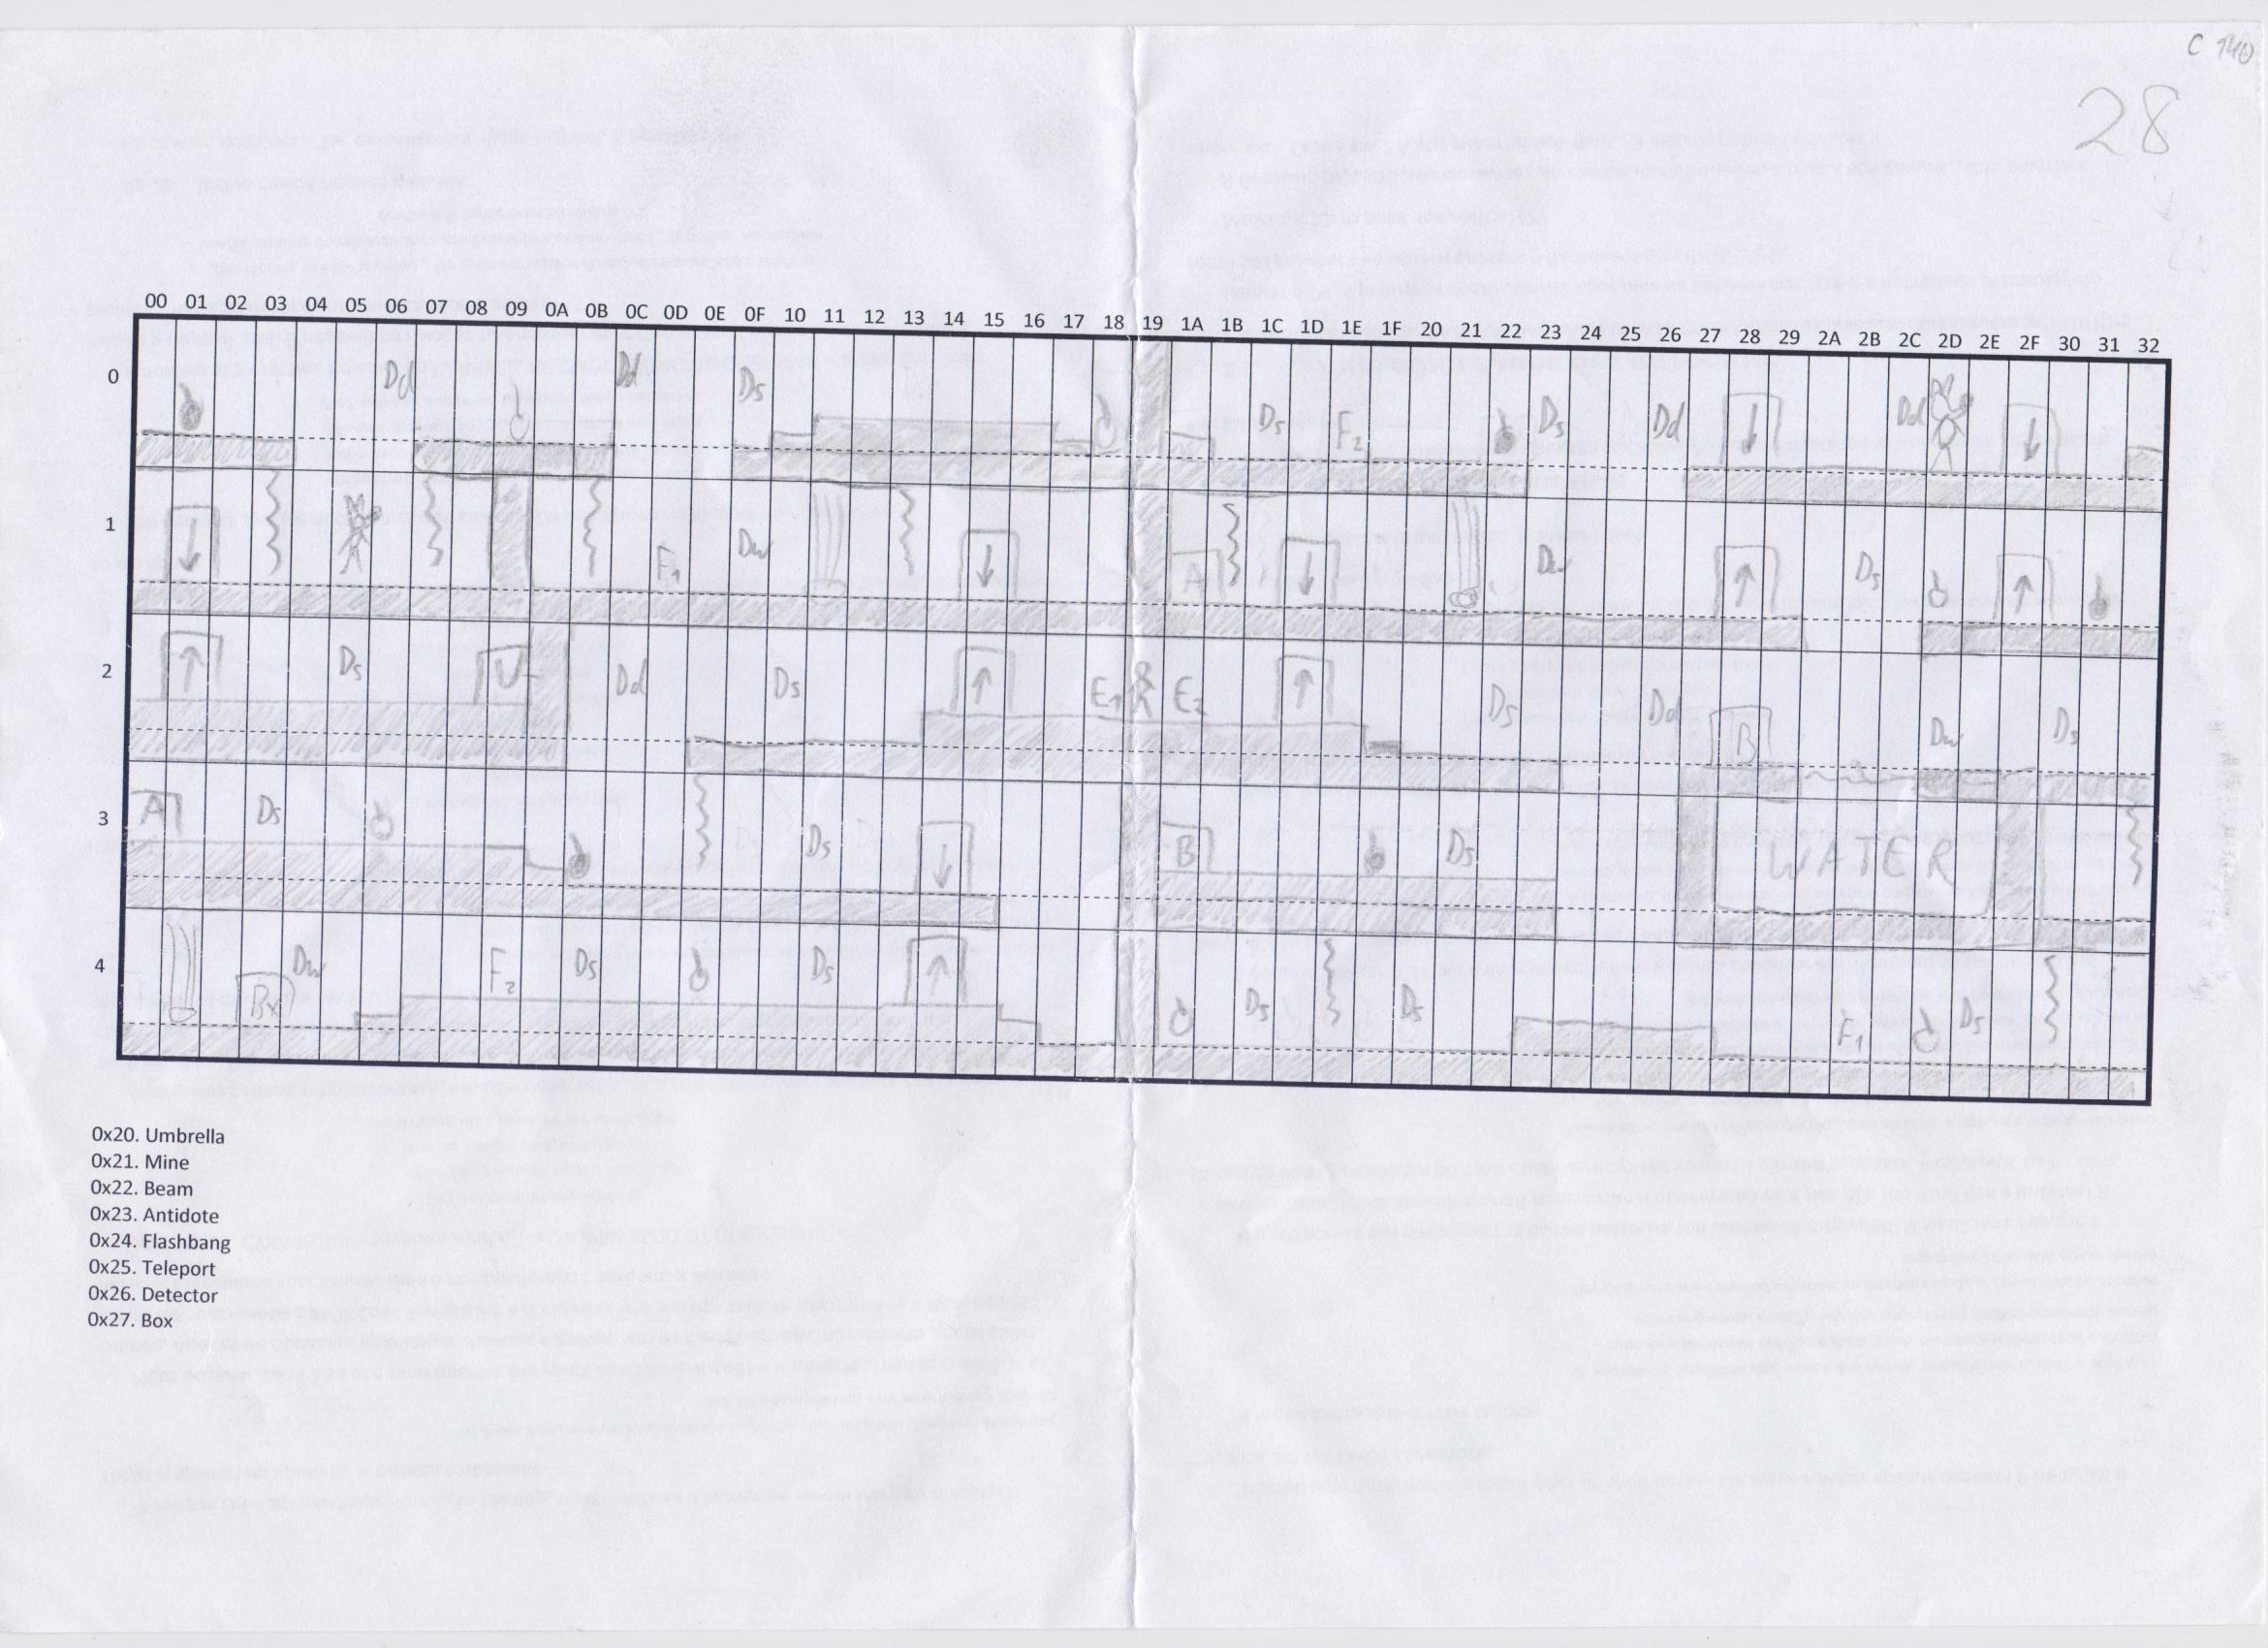 C 140
28
00 01 02 03 04 05 06 07 08 09 0A 0B 0C 0D 0E 0F 10 11 12 13 14 15 16 17 18 19 1A 1B 1C 1D 1E 1F 20 21 22 23 24 25 26 27 28 29 2A 2B 2C 2D 2E 2F 30 31 32
0 Dd Dd Ds Ds F2 Ds Dd Dd
1 F1 Dw A Dw Ds
2 Ds U Dd Ds E1 E2 Ds Dd B Dw Ds
3 A Ds Ds B Ds WATER
4 Bx Dw F2 Ds Ds Ds Ds F1 Ds
0x20. Umbrella
0x21. Mine
0x22. Beam
0x23. Antidote
0x24. Flashbang
0x25. Teleport
0x26. Detector
0x27. Box